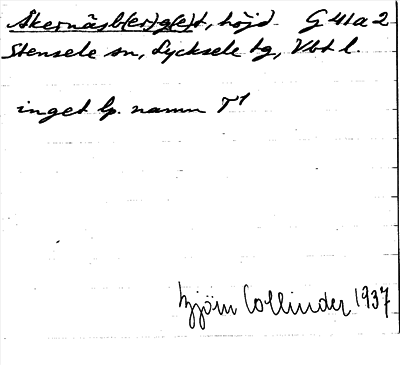 Åkernäsb(er)g(e)t, höjd G 41 a 2
Stensele sn, Lycksele tg, Vbt l.
inget lp. namn T1
Björn Collinder 1937